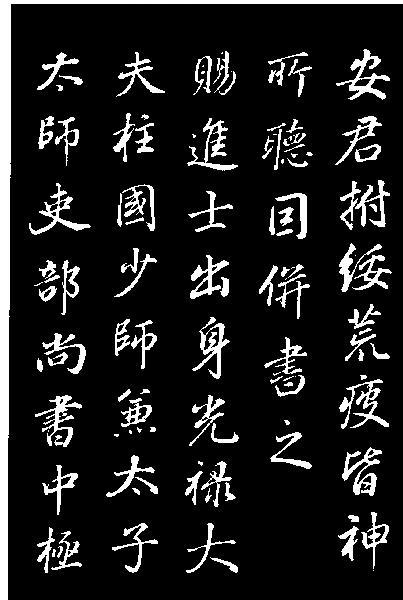 安君拊綏荒瘦皆神
所聽因併書之
賜進士出身光祿大
夫柱國少師兼太子
太師吏部尚書中極